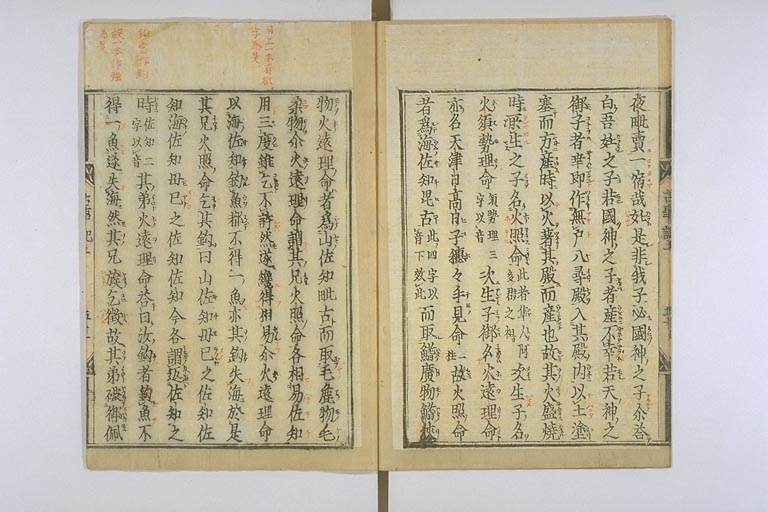 夜毗賣一宿哉妊是非我子必國神之子尒荅
白吾妊之子若國神之子者産不幸若天神之
御子者幸即作無戸八尋殿入其殿内以土塗
塞而方産時以火著其殿而産也故其火盛燒
時所生之子名火照命此者隼人阿多君之祖次生子名
火須勢理命須勢理三字以音次生子御名火遠理命
亦名天津日高日子穗々手見命三柱故火照命
者爲海佐知毘古此四字以音下效此而取鰭廣物鰭狹
物火遠理命者爲山佐知毗古而取毛麁物毛
柔物尒火遠理命謂其兄火照命各相易佐知
用三度雖乞不許然遂纔得相易尒火遠理命
以海佐知鈎魚都不得一魚亦其鈎失海於是
其兄火照命乞其鈎曰山佐知毋已之佐知佐
知海佐知毋已之佐知佐知今各謂返佐知之
時佐知二字以音其弟火遠理命荅曰汝鈎者鈎魚不
得一魚遂失海然其兄強乞徵故其弟破御佩
用上一本有欲
字爲是